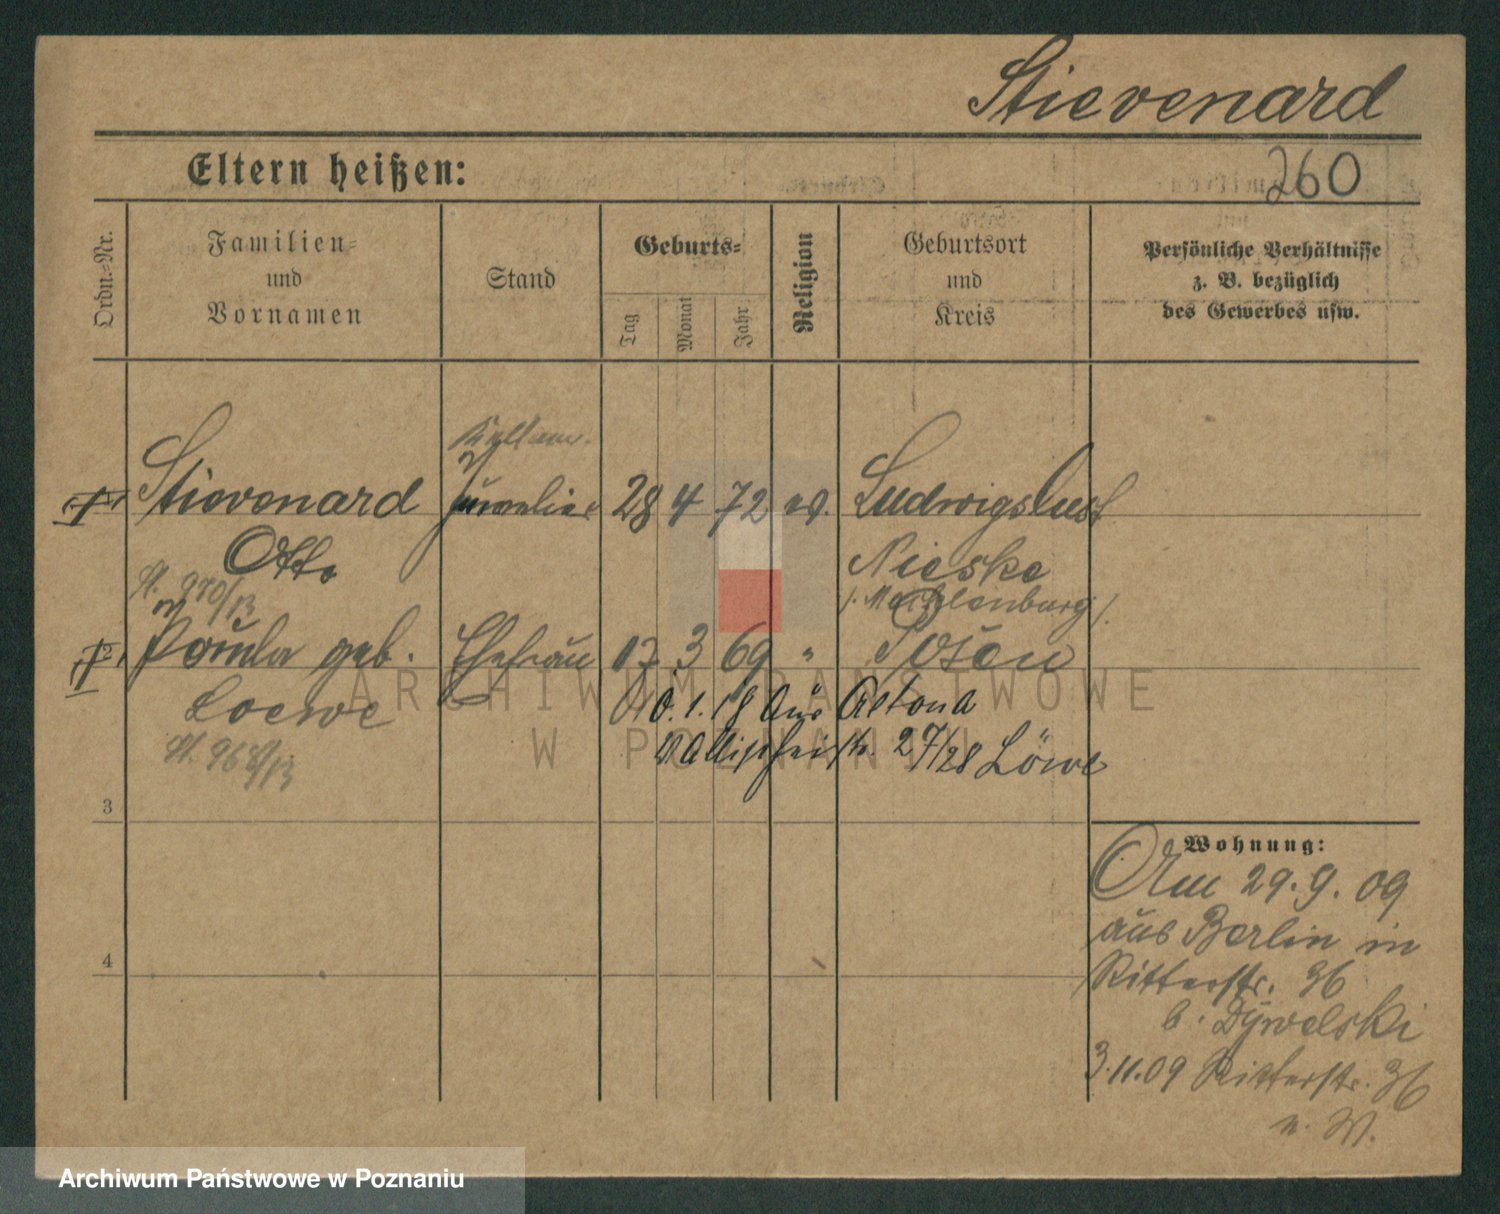 Stievenard
Eltern heißen:
260
Ordn.-Nr.
Familien-
und
Vornamen
Stand
Geburts-
Tag
Monat
Jahr
Religion
Geburtsort
und
Kreis
Persönliche Verhältnisse
z. B. bezüglich
des Gewerbes usw.
Stievenard
Juwelier
28 4 72 ev. Ludwigslust
Otto
Nieske
/. Mecklenburg /.
Paula geb. Ehefrau 13 3 69 " Posen
Loewe
10.1.18 aus Altona
Wallischeistr. 27/28 Löwe
3
4
Wohnung:
Am 29.9.09
aus Berlin in
Ritterstr. 36
b. Dywelski
3.11.09 Ritterstr. 36
n. W.
ARCHIWUM PAŃSTWOWE
W POZNANIU
Archiwum Państwowe w Poznaniu